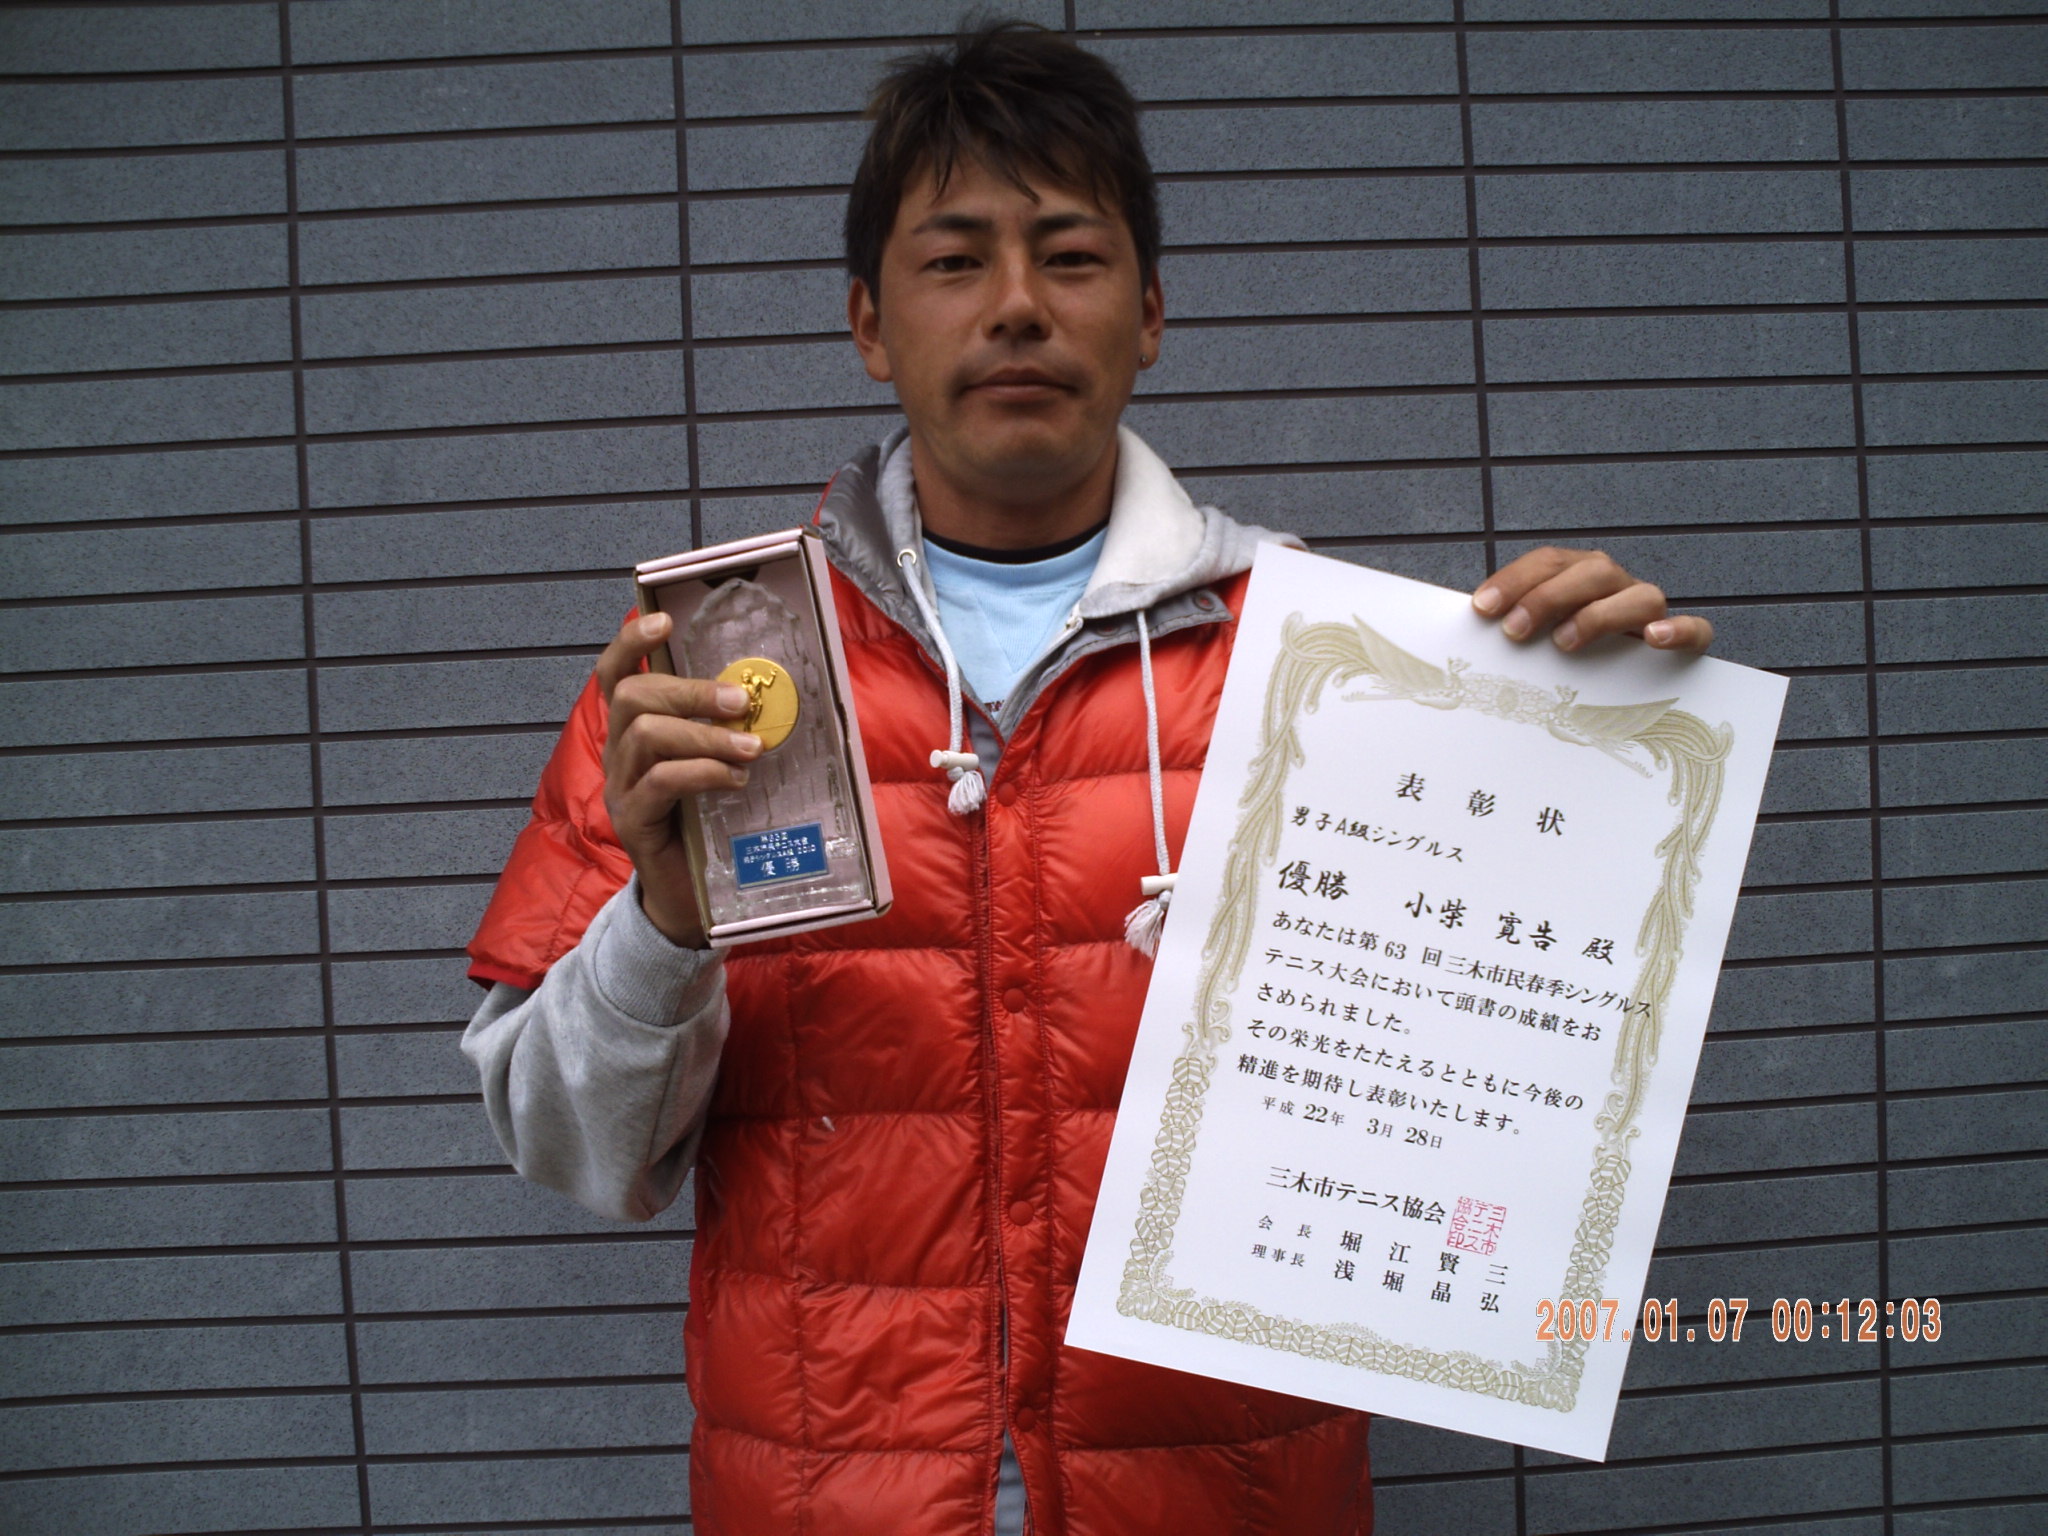 第63回
三木市民テニス大会
男子シングルスA級 2010
優勝
表彰状
男子A級シングルス
優勝 小柴 寛告 殿
あなたは第 63 回三木市民春季シングルス
テニス大会において頭書の成績をお
さめられました。
その栄光をたたえるとともに今後の
精進を期待し表彰いたします。
平成 22年 3月 28日
三木市テニス協会
三木市テニス協会印
会長 堀江賢三
理事長 浅堀晶弘
2007.01.07 00:12:03